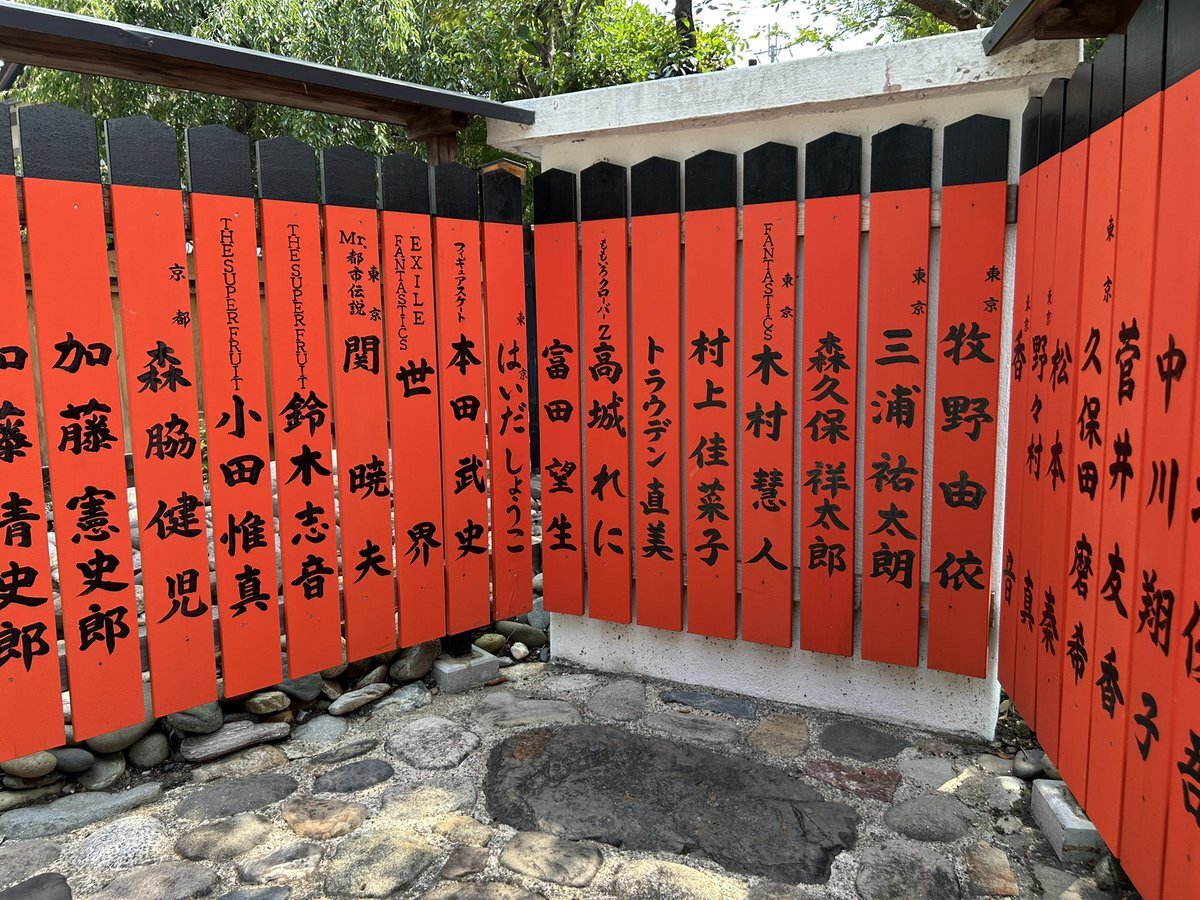 加藤清史郎
加藤憲史郎
京都
森脇健児
THE SUPER FRUIT
小田惟真
THE SUPER FRUIT
鈴木志音
Mr.都市伝説
東京
関暁夫
EXILE
FANTASTICS
世界
フィギュアスケート
本田武史
東京
はいだしょうこ
富田望生
ももいろクローバーZ
高城れに
トラウデン直美
村上佳菜子
FANTASTICS
東京
木村慧人
森久保祥太郎
東京
三浦祐太朗
東京
牧野由依
香音
東京
野々村真
松本秦
東京
久保田磨希
菅井友香
中川翔子